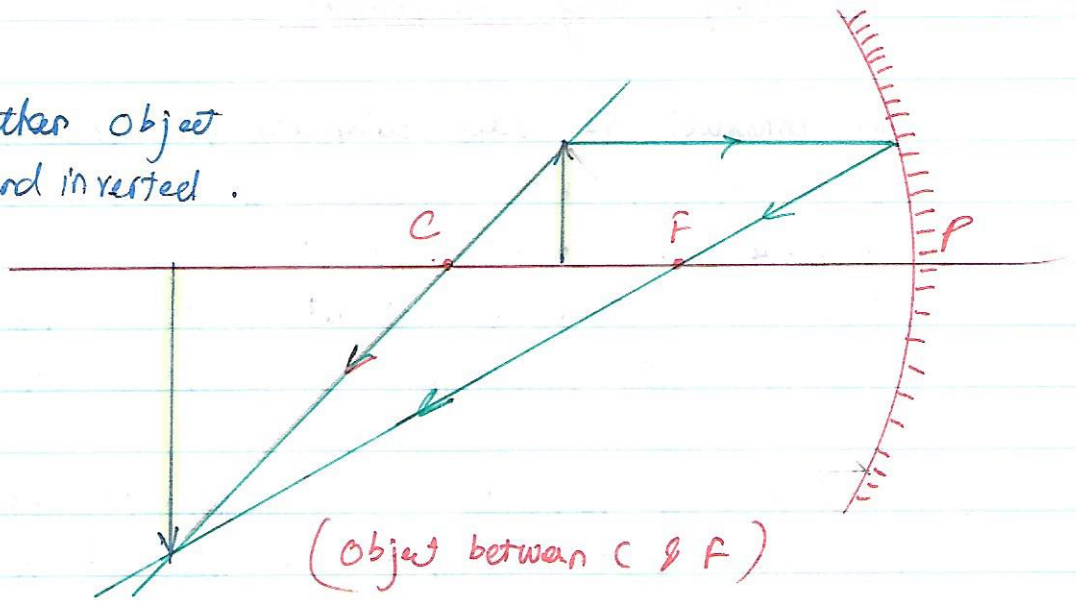 than object
nd inverted.
C
F
P
(object between C & F)